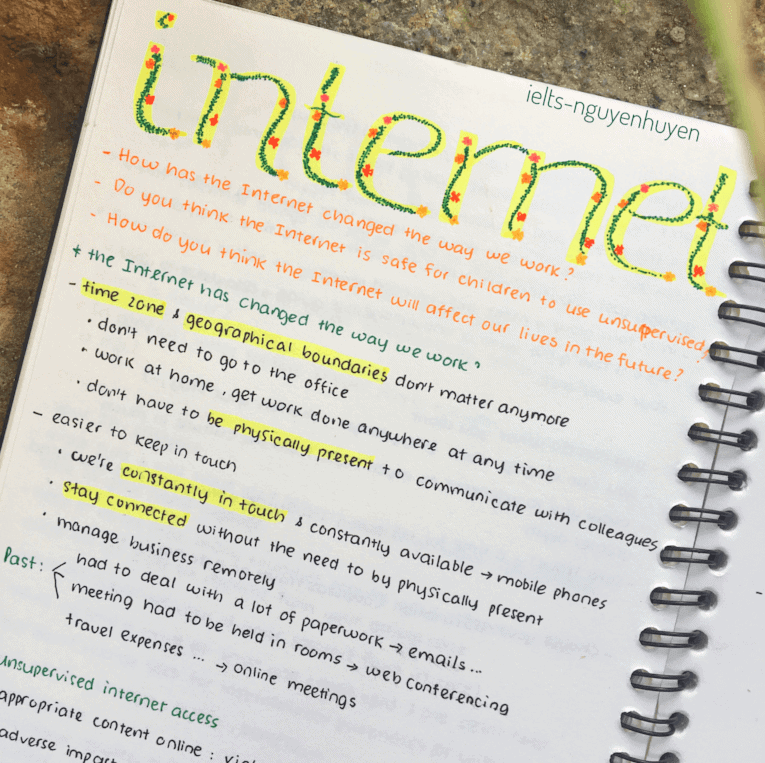 internet
ielts-nguyenhuyen
- How has the Internet changed the way we work?
- Do you think the Internet is safe for children to use unsupervised?
- How do you think the Internet will affect our lives in the future?
* the Internet has changed the way we work?
- time zone & geographical boundaries don't matter anymore
• don't need to go to the office
• work at home, get work done anywhere at any time
• don't have to be physically present to communicate with colleagues
- easier to keep in touch
• we're constantly in touch & constantly available → mobile phones
• stay connected without the need to by physically present
• manage business remotely
Past: had to deal with a lot of paperwork → emails...
meeting had to be held in rooms → web conferencing
travel expenses ... → online meetings
unsupervised internet access
appropriate content online :
adverse